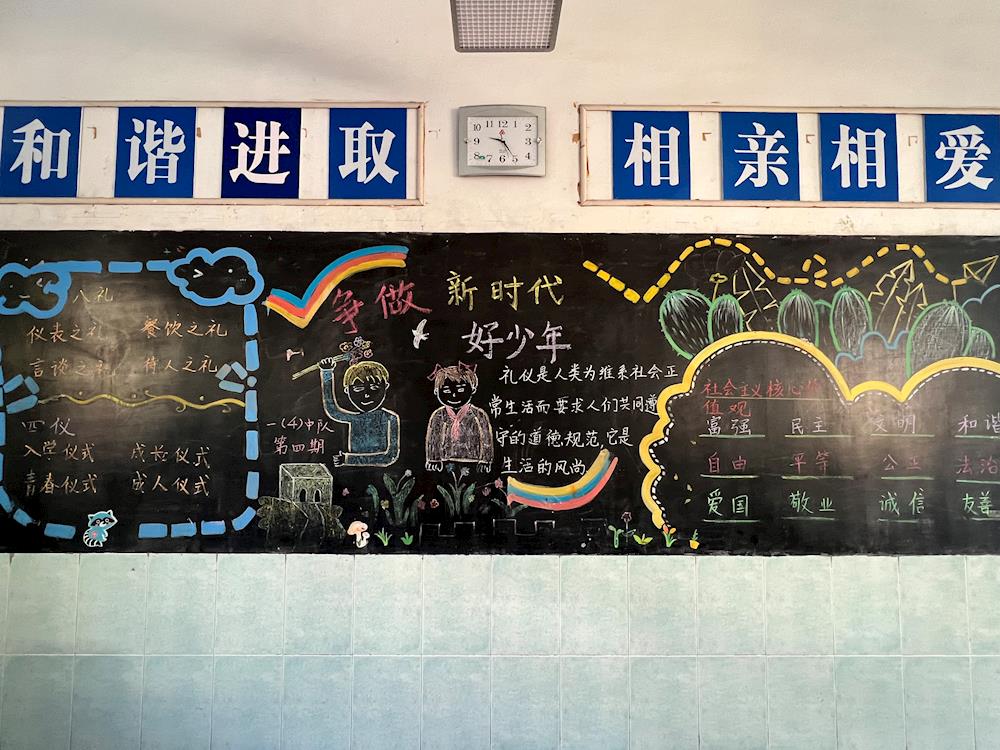 和谐进取
相亲相爱
10 11 12 1 2 3 4 5 6 7 8 9
八礼
仪表之礼 餐饮之礼
言谈之礼 待人之礼
四仪
入学仪式 成长仪式
青春仪式 成人仪式
争做 新时代
好少年
一(4)中队
第四期
礼仪是人类为维系社会正
常生活而要求人们共同遵
守的道德规范,它是
生活的风尚
社会主义核心价
值观
富强 民主 文明 和谐
自由 平等 公正 法治
爱国 敬业 诚信 友善